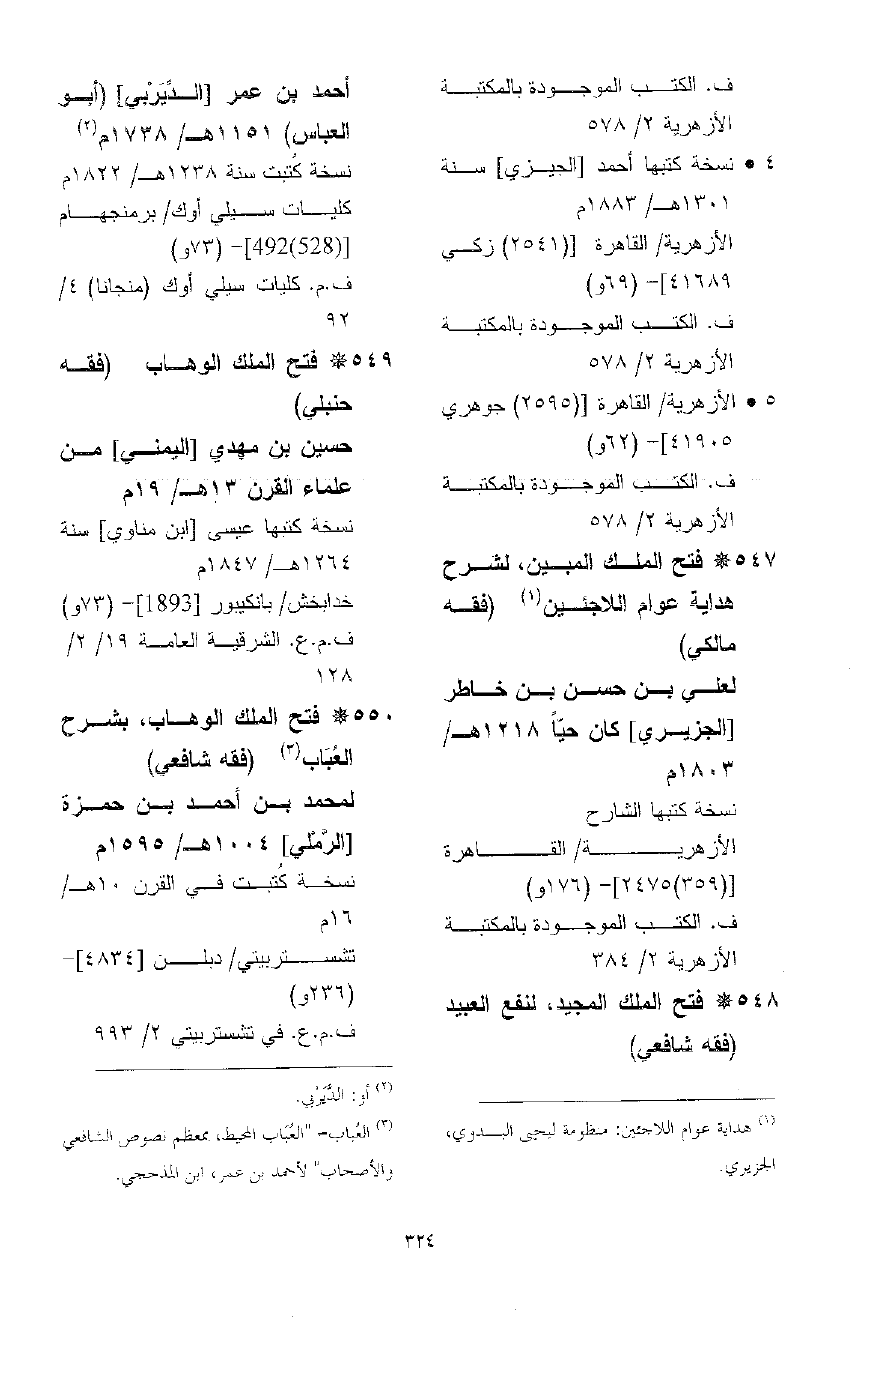 ف. الكتب الموجودة بالمكتبة
الأزهرية ٢/ ٥٧٨
٤ • نسخة كتبها أحمد [الجيزي] سنة
١٣٠١هـ/ ١٨٨٣م
الأزهرية/ القاهرة [(٢٥٤١) زكي
٤١٦٨٩]- (٦٩و)
ف. الكتب الموجودة بالمكتبة
الأزهرية ٢/ ٥٧٨
٥ • الأزهرية/ القاهرة [(٢٥٩٥) جوهري
٤١٩٠٥]- (٦٢و)
ف. الكتب الموجودة بالمكتبة
الأزهرية ٢/ ٥٧٨
٥٤٧* فتح الملك المبين، لشرح
هداية عوام اللاجئين(١) (فقه
مالكي)
لعلي بن حسن بن خاطر
[الجزيري] كان حيّاً ١٢١٨هـ/
١٨٠٣م
نسخة كتبها الشارح
الأزهرية/ القاهرة
[(٣٥٩)٢٤٧٥]- (١٧٦و)
ف. الكتب الموجودة بالمكتبة
الأزهرية ٢/ ٣٨٤
٥٤٨* فتح الملك المجيد، لنفع العبيد
(فقه شافعي)
(١) هداية عوام اللاجئين: منظومة ليحيى البدوي،
الجزيري.
أحمد بن عمر [الدَّيْرَبي] (أبو
العباس) ١١٥١هـ/ ١٧٣٨م(٢)
نسخة كُتبت سنة ١٢٣٨هـ/ ١٨٢٢م
كليات سيلي أوك/ برمنجهام
[492(528)]- (٧٣و)
ف.م. كليات سيلي أوك (منجانا) ٤/
٩٢
٥٤٩* فتح الملك الوهاب (فقه
حنبلي)
حسين بن مهدي [اليمني] من
علماء القرن ١٣هـ/ ١٩م
نسخة كتبها عيسى [ابن مناوي] سنة
١٢٦٤هـ/ ١٨٤٧م
خدابخش/ بانكيبور [1893]- (٧٣و)
ف.م.ع. الشرقية العامة ١٩/ ٢/
١٢٨
٥٥٠* فتح الملك الوهاب، بشرح
العُبَاب(٣) (فقه شافعي)
لمحمد بن أحمد بن حمزة
[الرَّمْلي] ١٠٠٤هـ/ ١٥٩٥م
نسخة كُتبت في القرن ١٠هـ/
١٦م
تشستربيتي/ دبلن [٤٨٣٤]-
(٢٣٦و)
ف.م.ع. في تشستربيتي ٢/ ٩٩٣
(٢) أو: الدَّيْرَبي.
(٣) العُباب- "العُبَاب المحيط، بمعظم نصوص الشافعي
والأصحاب" لأحمد بن عمر، ابن المذحجي.
٣٢٤